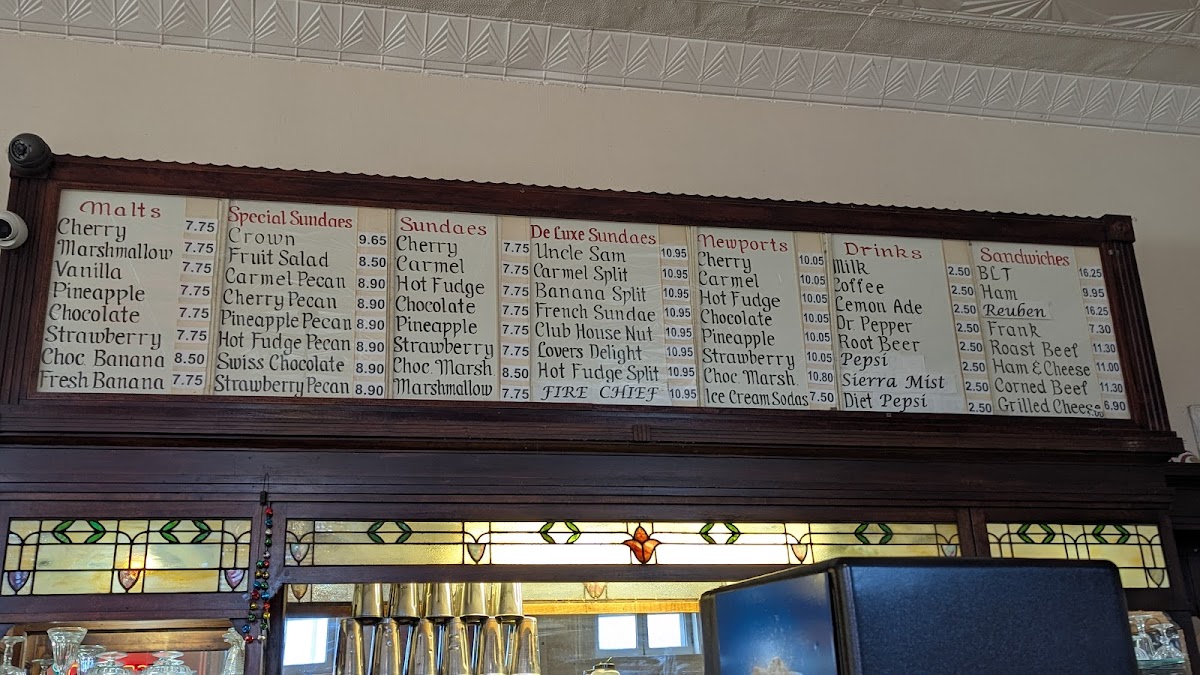 Malts
Cherry 7.75
Marshmallow 7.75
Vanilla 7.75
Pineapple 7.75
Chocolate 7.75
Strawberry 7.75
Choc. Banana 8.50
Fresh Banana 7.75
Special Sundaes
Crown 9.65
Fruit Salad 8.50
Carmel Pecan 8.90
Cherry Pecan 8.90
Pineapple Pecan 8.90
Hot Fudge Pecan 8.90
Swiss Chocolate 8.90
Strawberry Pecan 8.90
Sundaes
Cherry 7.75
Carmel 7.75
Hot Fudge 7.75
Chocolate 7.75
Pineapple 7.75
Strawberry 7.75
Choc. Marsh 8.50
Marshmallow 7.75
De Luxe Sundaes
Uncle Sam 10.95
Carmel Split 10.95
Banana Split 10.95
French Sundae 10.95
Club House Nut 10.95
Lovers Delight 10.95
Hot Fudge Split 10.95
FIRE CHIEF 10.95
Newports
Cherry 10.05
Carmel 10.05
Hot Fudge 10.05
Chocolate 10.05
Pineapple 10.05
Strawberry 10.05
Choc. Marsh. 10.80
Ice Cream Sodas 7.50
Drinks
Milk 2.50
Coffee 2.50
Lemon Ade 2.50
Dr. Pepper 2.50
Root Beer 2.50
Pepsi 2.50
Sierra Mist 2.50
Diet Pepsi 2.50
Sandwiches
BLT 16.25
Ham 9.95
Reuben 16.25
Frank 7.30
Roast Beef 11.30
Ham & Cheese 11.00
Corned Beef 11.30
Grilled Cheese 6.90